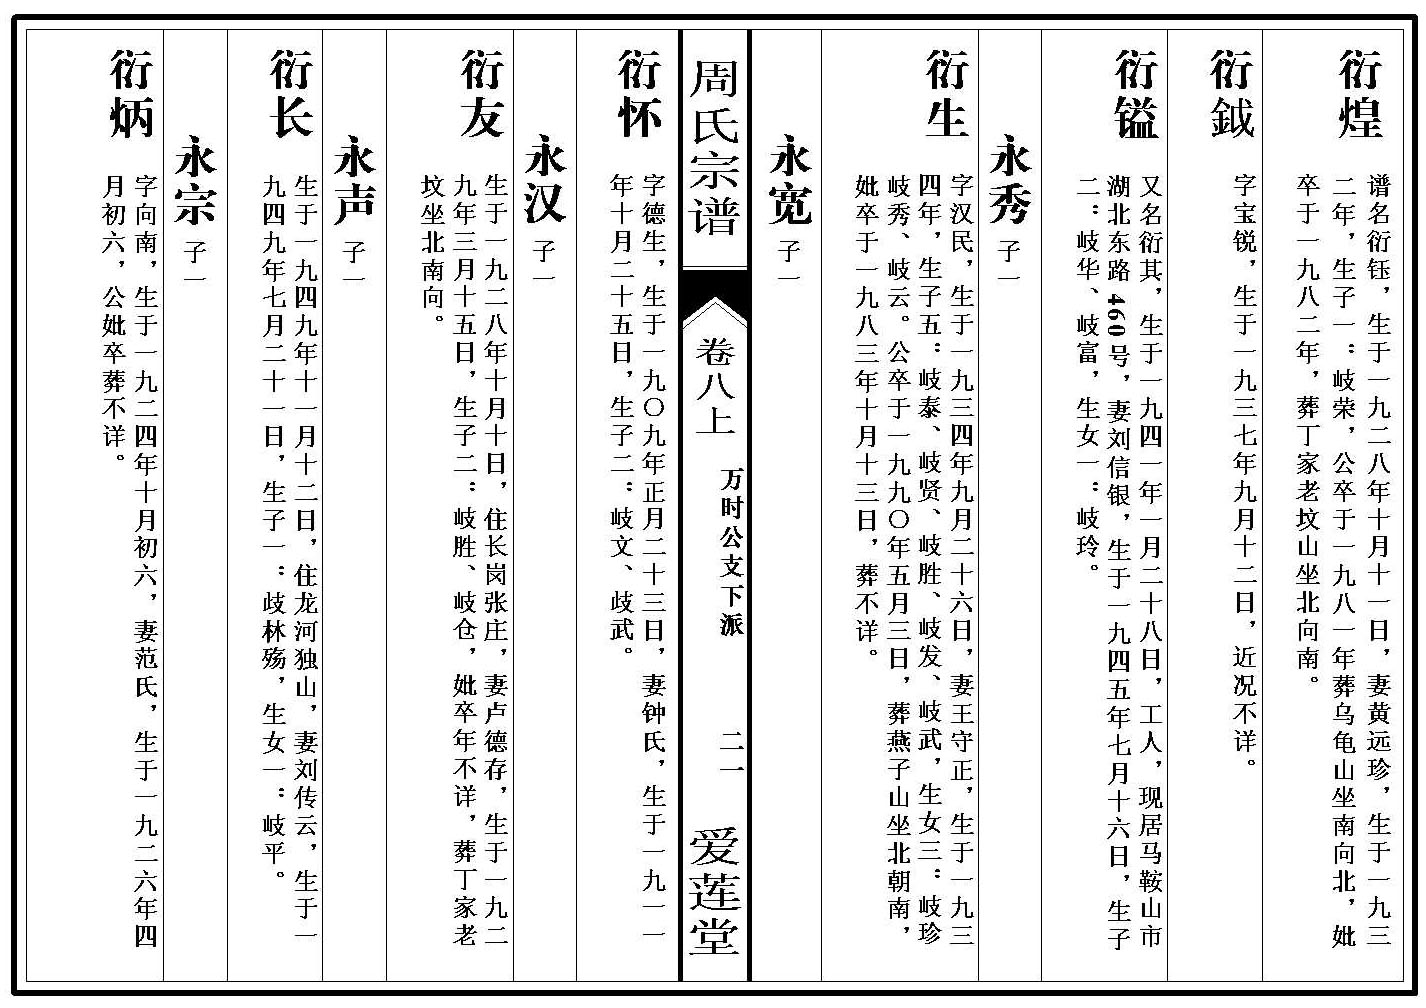 衍煌
谱名衍钰，生于一九二八年十月十一日，妻黄远珍，生于一九三
二年，生子一：岐荣，公卒于一九八一年葬乌龟山坐南向北，妣
卒于一九八二年，葬丁家老坟山坐北向南。
衍鉞
字宝锐，生于一九三七年九月十二日，近况不详。
衍镒
又名衍其，生于一九四一年一月二十八日，工人，现居马鞍山市
湖北东路460号，妻刘信银，生于一九四五年七月十六日，生子
二：岐华、岐富，生女一：岐玲。
永秀 子一
衍生
字汉民，生于一九三四年九月二十六日，妻王守正，生于一九三
四年，生子五：岐泰、岐贤、岐胜、岐发、岐武，生女三：岐珍
岐秀、岐云。公卒于一九九〇年五月三日，葬燕子山坐北朝南，
妣卒于一九八三年十月十三日，葬不详。
永宽 子一
周氏宗谱
卷八上
万时公支下派
二一
爱莲堂
衍怀
字德生，生于一九〇九年正月二十三日，妻钟氏，生于一九一一
年十月二十五日，生子二：岐文、歧武。
永汉 子一
衍友
生于一九二八年十月十日，住长岗张庄，妻卢德存，生于一九二
九年三月十五日，生子二：岐胜、岐仓，妣卒年不详，葬丁家老
坟坐北南向。
永声 子一
衍长
生于一九四九年十一月十二日，住龙河独山，妻刘传云，生于一
九四九年七月二十一日，生子一：歧林殇，生女一：岐平。
永宗 子一
衍炳
字向南，生于一九二四年十月初六，妻范氏，生于一九二六年四
月初六，公妣卒葬不详。